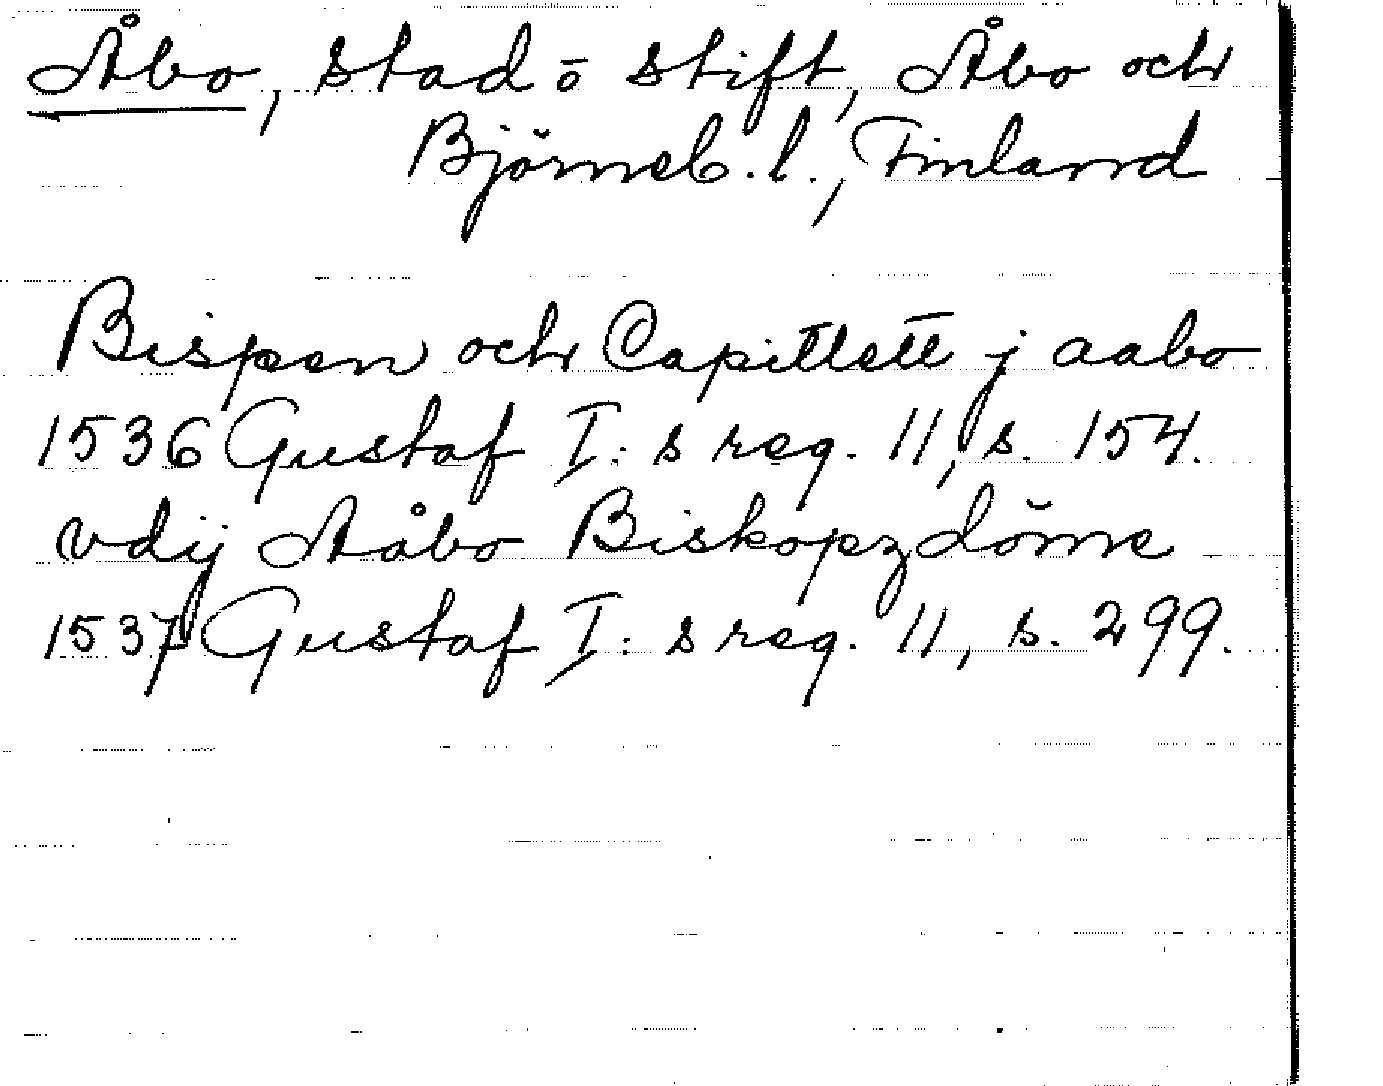 Åbo, stad o stift, Åbo och
Björneb. l., Finland
Bispen och Capittett j aabo
1536 Gustaf I:s reg. 11, s. 154.
vdij Aåbo Biskopzdöme
1537 Gustaf I:s reg. 11, s. 299.